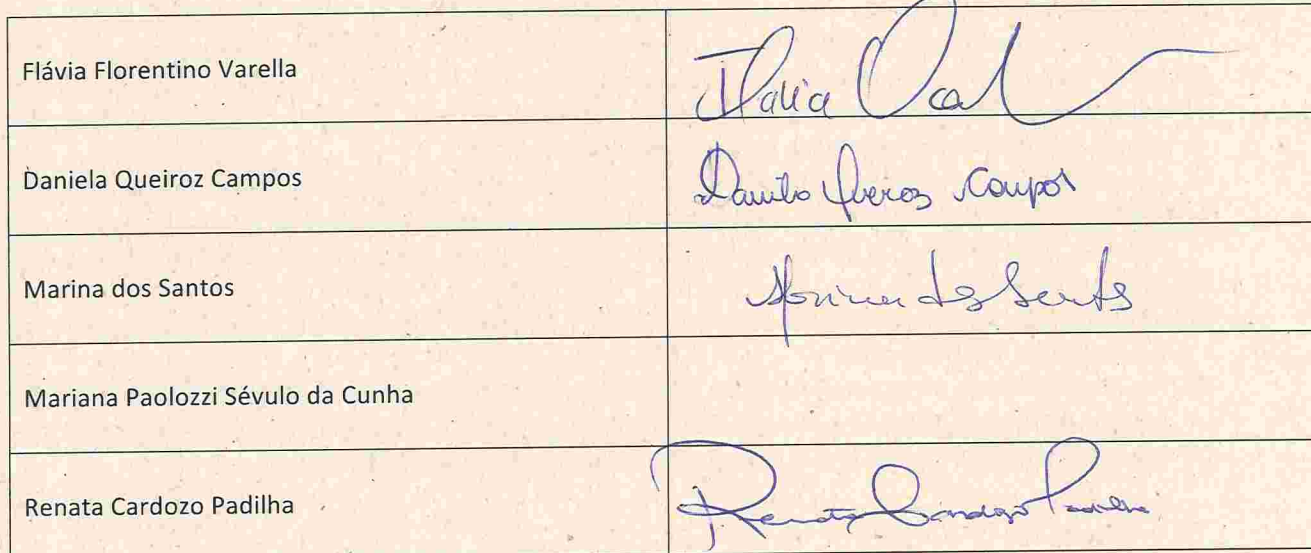 Flávia Florentino Varella
Flavia
Daniela Queiroz Campos
Daniela Queiroz Campos
Marina dos Santos
Marina dos Santos
Mariana Paolozzi Sévulo da Cunha
Renata Cardozo Padilha
Renata Cardozo Padilha